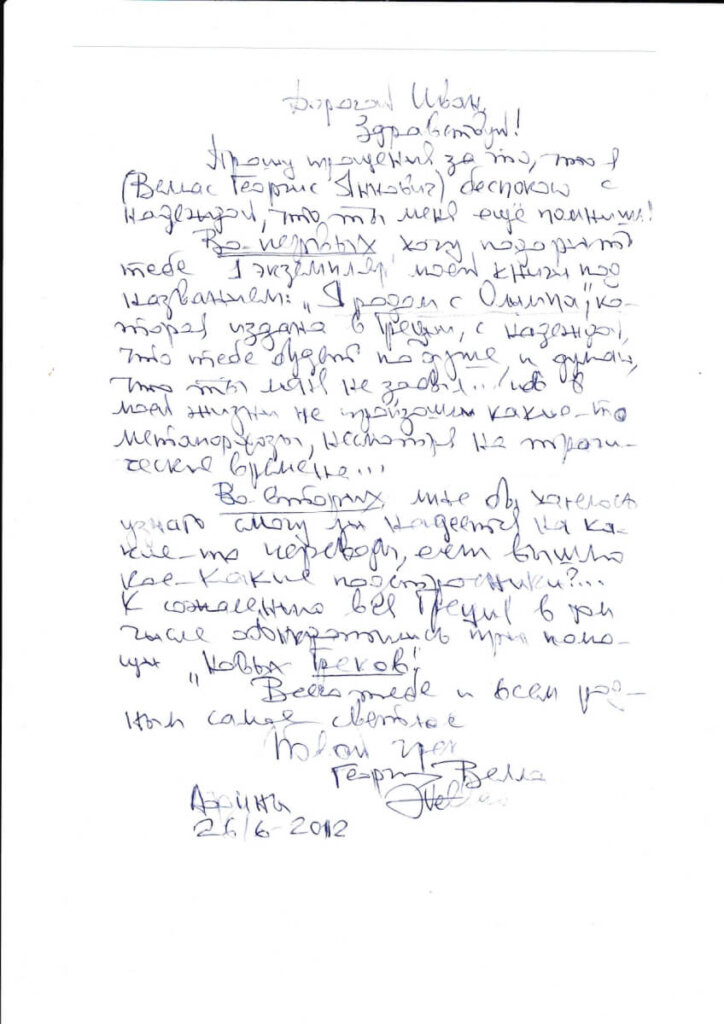 Дорогой Иван,
Здравствуй!
Прошу прощения за то, что я
(Веллас Георгис Яннович) беспокою с
надеждой, что ты меня ещё помнишь!
Во-первых хочу подарить
тебе 1 экземпляр моей книги под
названием: „Я родом с Олимпа", ко-
торая издана в Греции, с надеждой,
что тебе будет по душе, и думаю,
что ты меня не забыл...
моей жизни не произошли какие-то
несмотря на траги-
ческие времена...
Во-вторых, мне бы хотелось
узнать смогу ли надеяться на ка-
кие-то переводы,
кое-какие
К сожалению вся Греция в
числе при помо-
щи „новых Греков"!
Всего тебе и всем род-
ным самое светлое
Твой грек
Георгис Веллас
Афины
26/6-2012